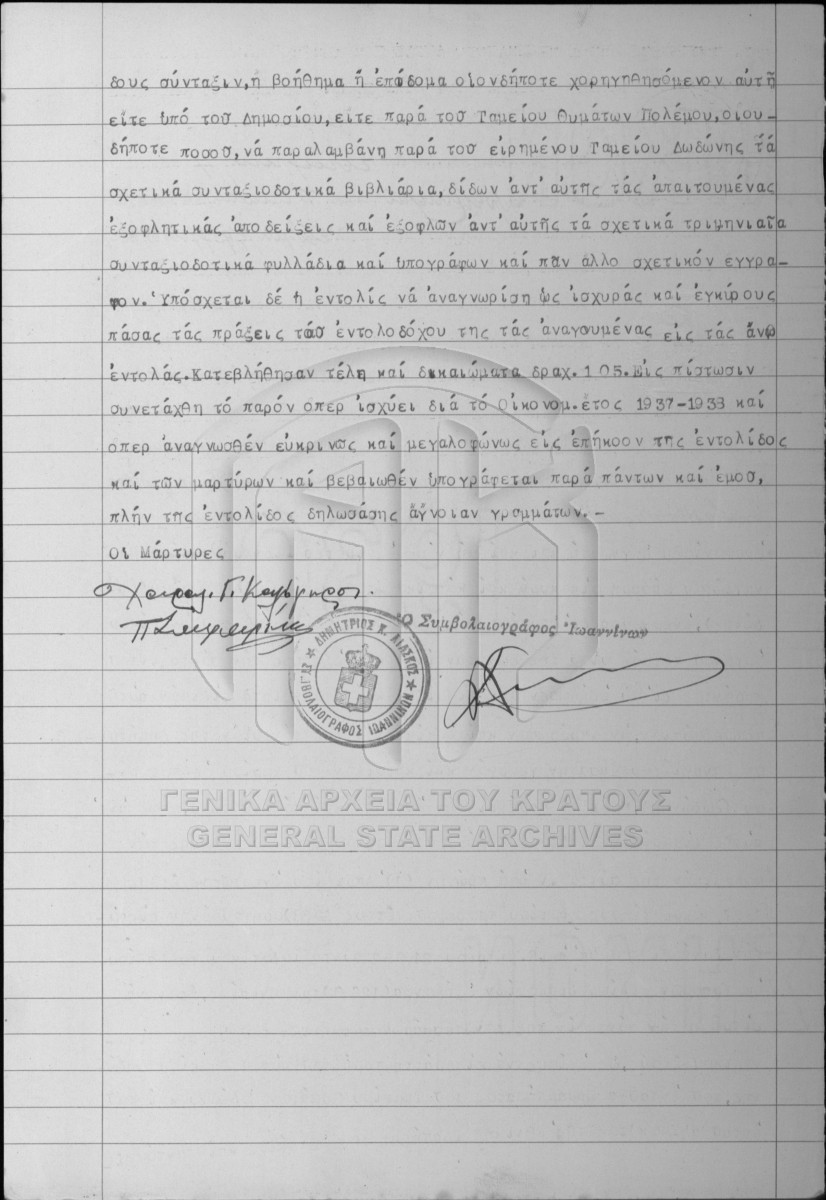 δους σύνταξιν,ή βοήθημα ή ἐπίδομα οἱονδήποτε χορηγηθησόμενον αὐτῇ
εἴτε ὑπό τοῦ Δημοσίου,εἴτε παρά τοῦ Ταμείου Θυμάτων Πολέμου,οιου-
δήποτε ποσοῦ,νά παραλαμβάνη παρά τοῦ εἰρημένου Ταμείου Δωδώνης τά
σχετικά συνταξιοδοτικά βιβλιάρια,δίδων ἀντ' αὐτῆς τάς ἀπαιτουμένας
ἐξοφλητικάς ἀποδείξεις καί ἐξοφλῶν ἀντ' αὐτῆς τά σχετικά τριμηνιαῖα
συνταξιοδοτικά φυλλάδια καί ὑπογράφων καί πᾶν ἄλλο σχετικόν εγγρα-
φον. Ὑπόσχεται δέ ἡ ἐντολίς νά ἀναγνωρίση ὡς ἰσχυράς καί ἐγκύρους
πάσας τάς πράξεις τοῦ ἐντολοδόχου της τάς ἀναγουμένας εἰς τάς ἄνω
ἐντολάς.Κατεβλήθησαν τέλη καί δικαιώματα δραχ.105.Εἰς πίστωσιν
συνετάχθη τό παρόν ὅπερ ἰσχύει διά τό Οἰκονομ.ἔτος 1937-1938 καί
ὅπερ ἀναγνωσθέν εὐκρινῶς καί μεγαλοφώνως εἰς ἐπήκοον τῆς ἐντολίδος
καί τῶν μαρτύρων καί βεβαιωθέν ὑπογράφεται παρά πάντων καί ἐμοῦ,
πλήν τῆς ἐντολίδος δηλωσάσης ἄγνοιαν γραμμάτων.-
Οἱ Μάρτυρες
Ὁ Συμβολαιογράφος Ἰωαννίνων
ΔΗΜΗΤΡΙΟΣ Κ. ΒΛΑΣΚΟΣ
ΣΥΜΒΟΛΑΙΟΓΡΑΦΟΣ ΙΩΑΝΝΙΝΩΝ
ΓΕΝΙΚΑ ΑΡΧΕΙΑ ΤΟΥ ΚΡΑΤΟΥΣ
GENERAL STATE ARCHIVES